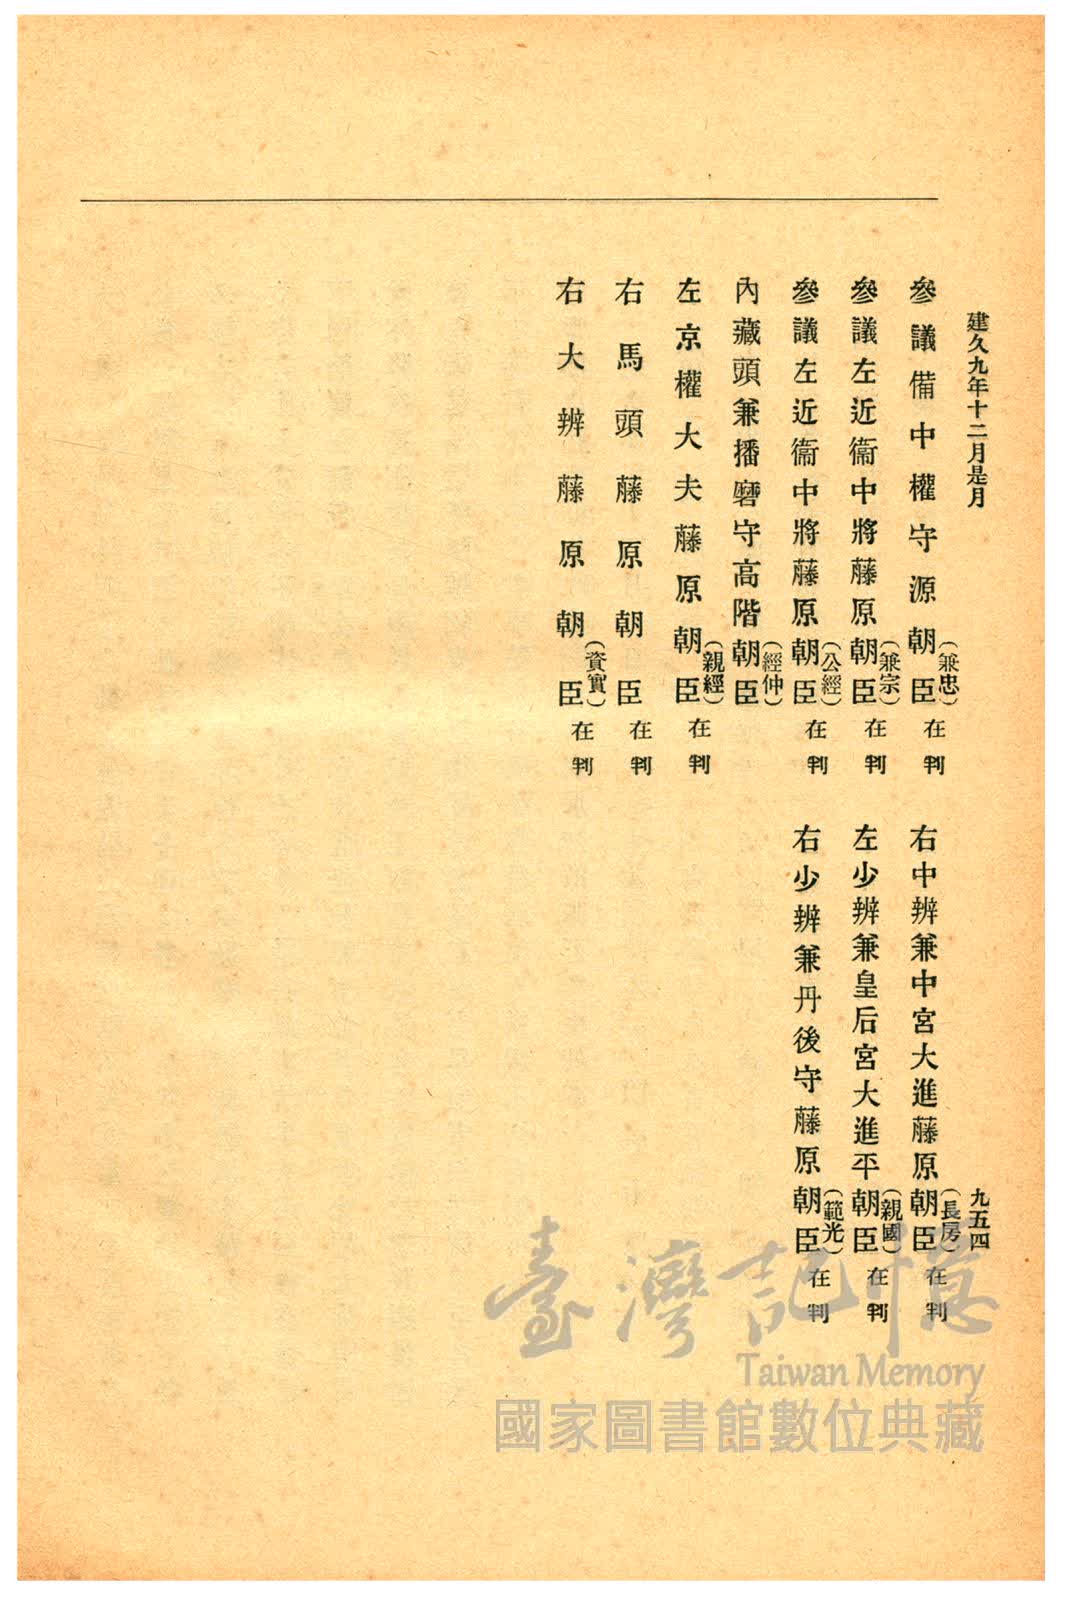 建久九年十二月是月
九五四
參議備中權守源朝臣(兼忠)在判
參議左近衞中將藤原朝臣(兼宗)在判
參議左近衞中將藤原朝臣(公經)在判
內藏頭兼播磨守高階朝臣(經仲)
左京權大夫藤原朝臣(親經)在判
右馬頭藤原朝臣在判
右大辨藤原朝臣(資實)在判
右中辨兼中宮大進藤原朝臣(長房)在判
左少辨兼皇后宮大進平朝臣(親國)在判
右少辨兼丹後守藤原朝臣(範光)在判
臺灣記憶
Taiwan Memory
國家圖書館數位典藏